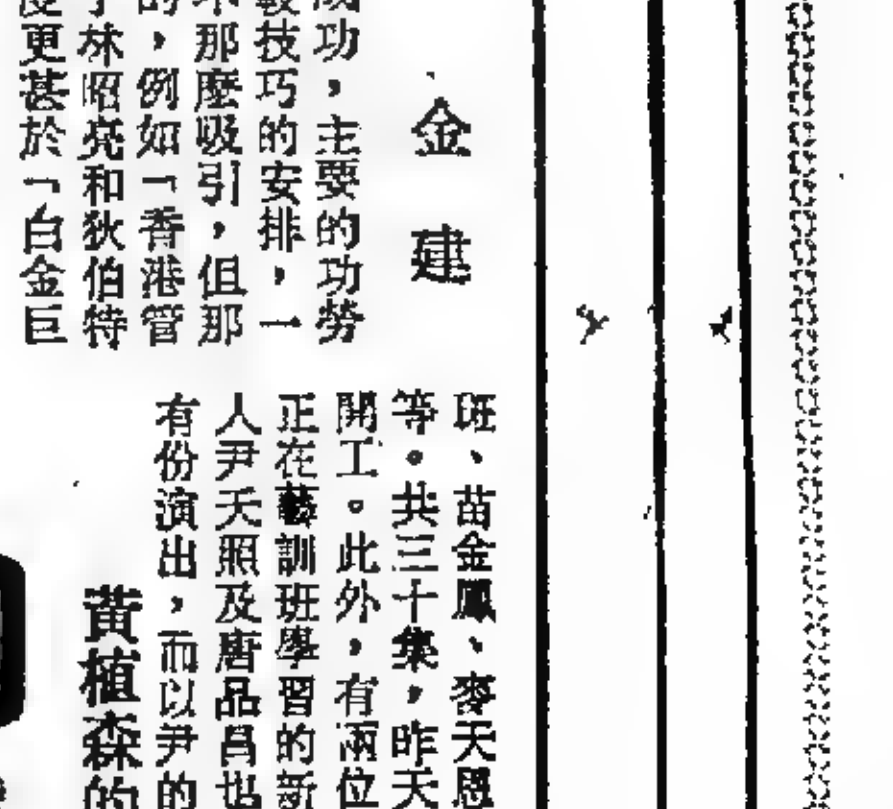 金建
功，主要的功勞
技巧的安排，一
那麼吸引，但那
，例如「香港管
林昭亮和狄伯特
更甚於「白金巨
班、苗金鳳、麥天恩
等。共三十集，昨天
開工。此外，有兩位
正在藝訓班學習的新
人尹天照及唐品昌也
有份演出，而以尹的
黃植森的